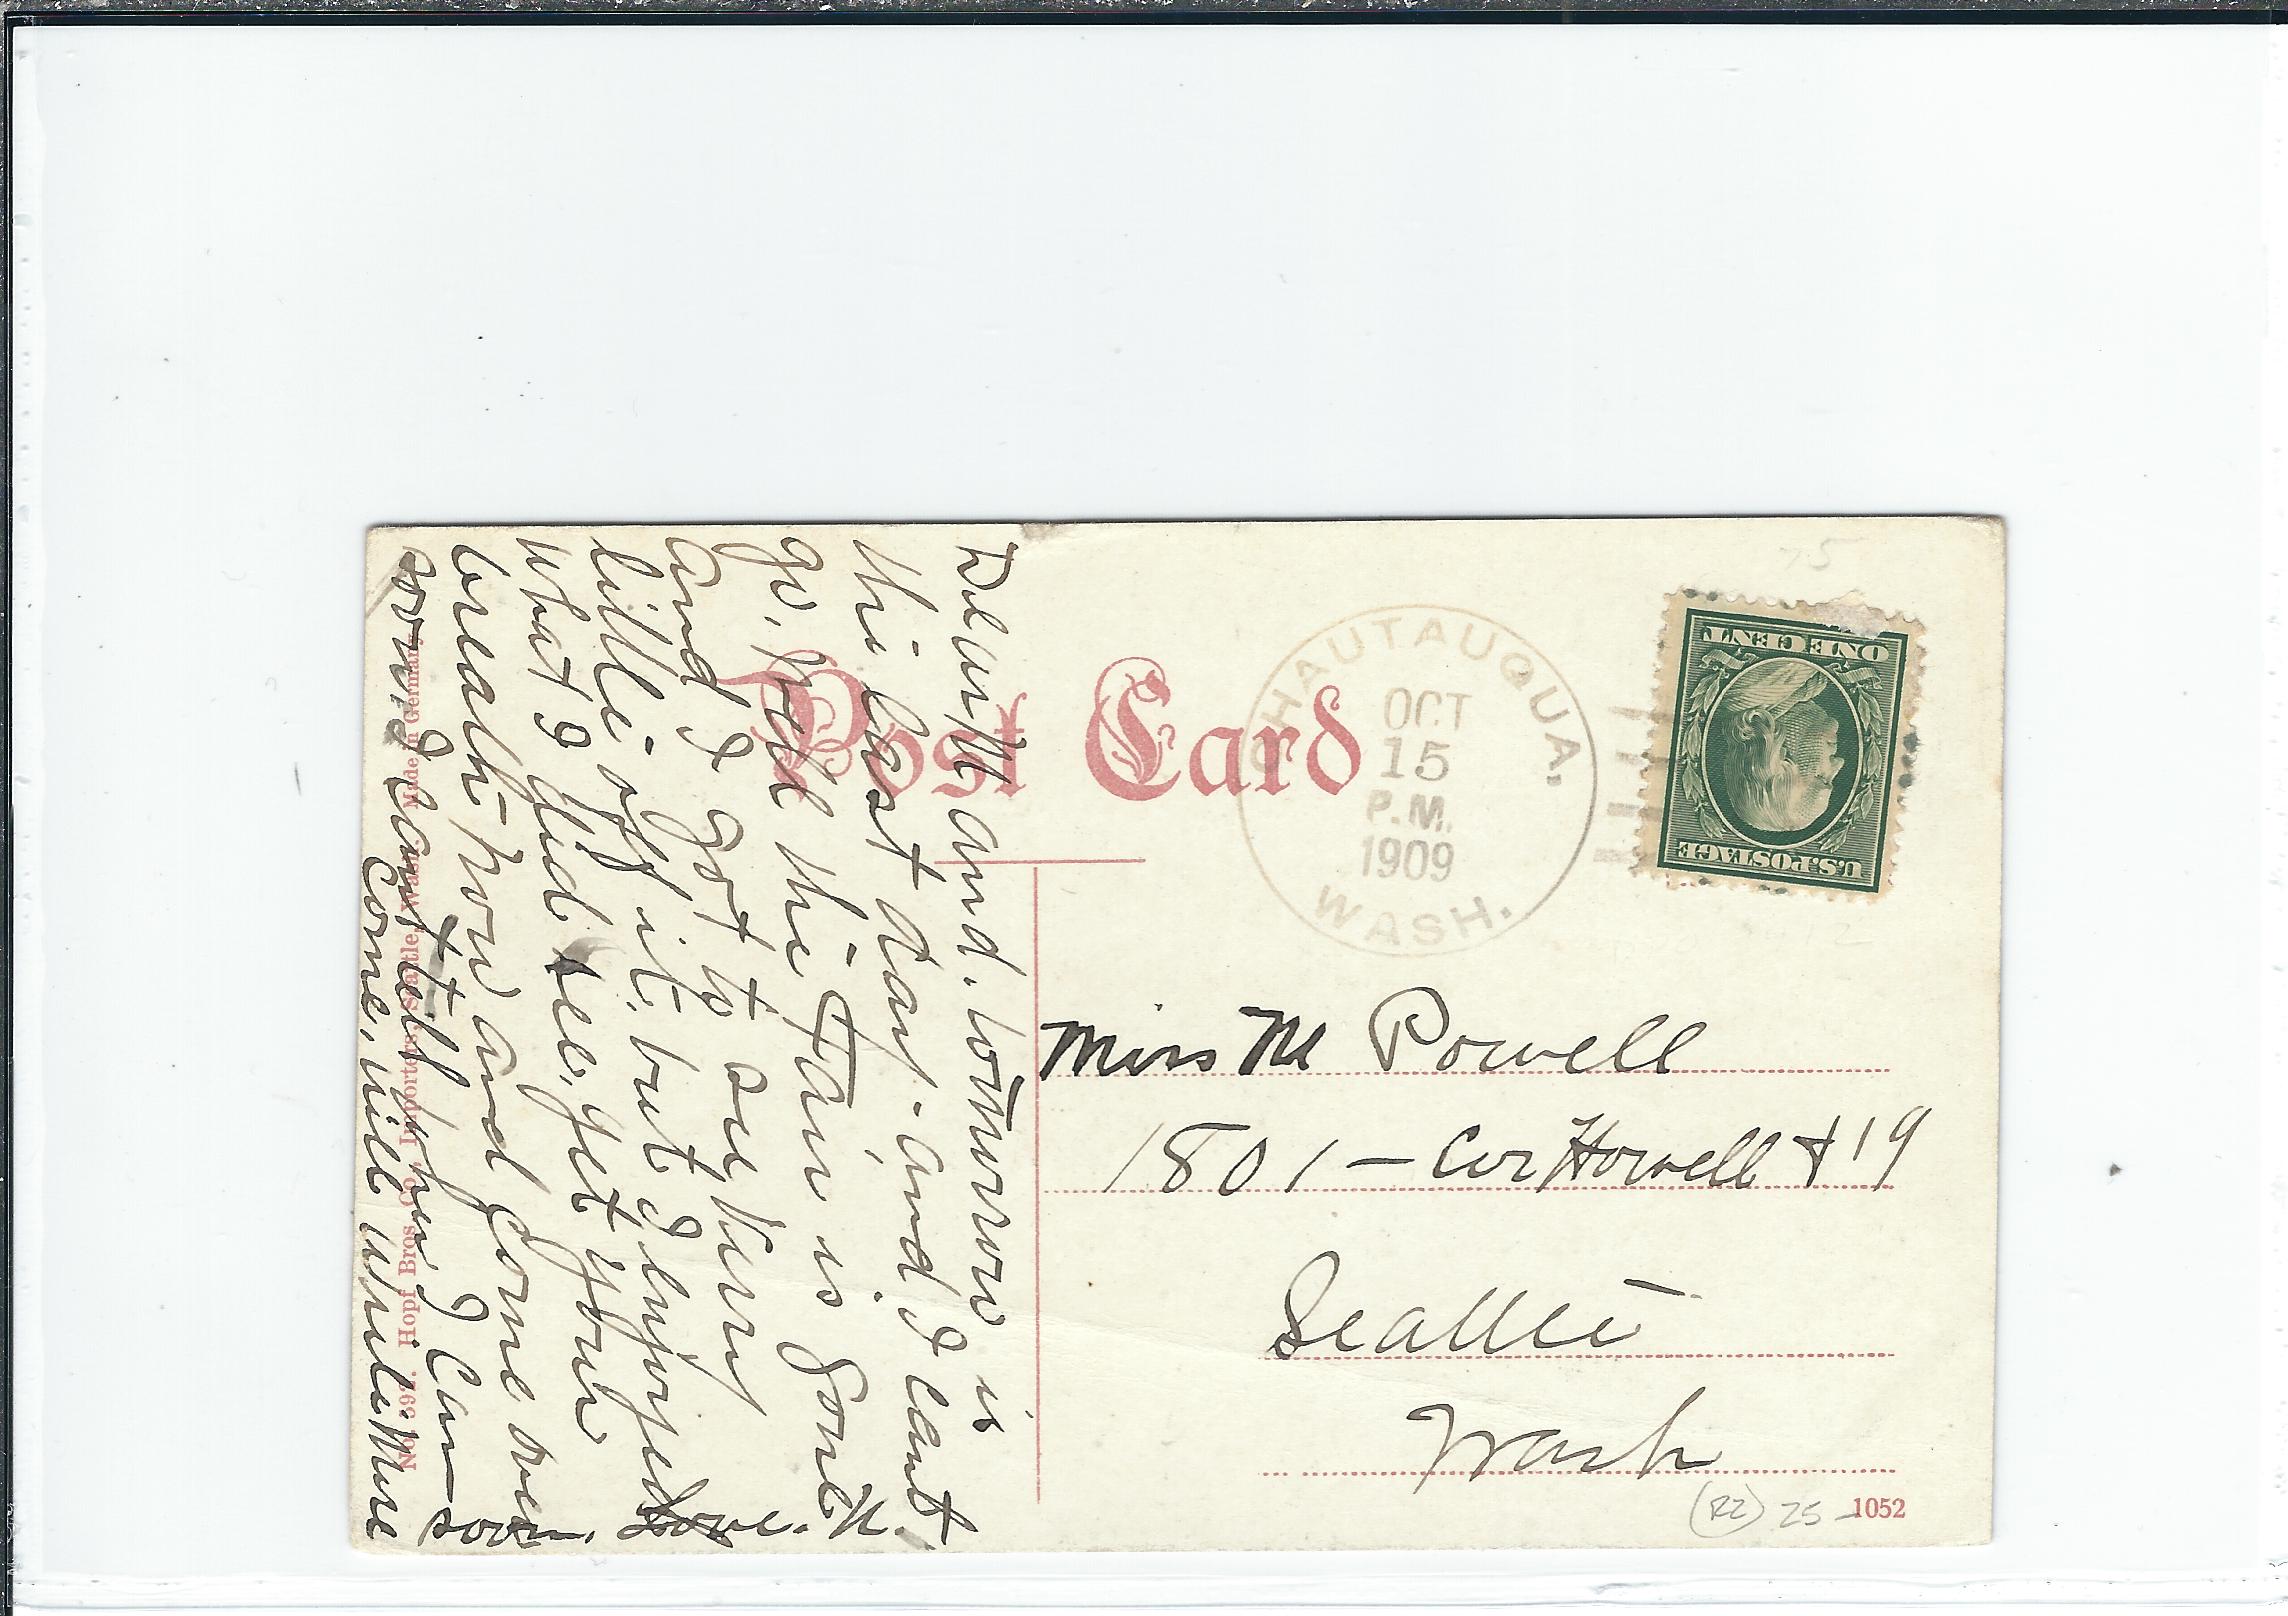 Post Card
CHAUTAUQUA,
OCT
15
P.M.
1909
WASH.
U.S. POSTAGE
ONE CENT
Miss M Powell
1801 - Cor Howell & 19
Seattle
Wash
1052
(RZ) 25-
75
and, tomorrow is
the last day - and I cant
go, well the Fair is gone
and I got to see very
little off it, but I enjoyed
what I did see, get your
breath now and come over
soon, I cant tell when I can
come, will write more
soon. Love. M.
No. 392. Hopf Bros. Co., Importers, Seattle, Wash. Made in Germany.